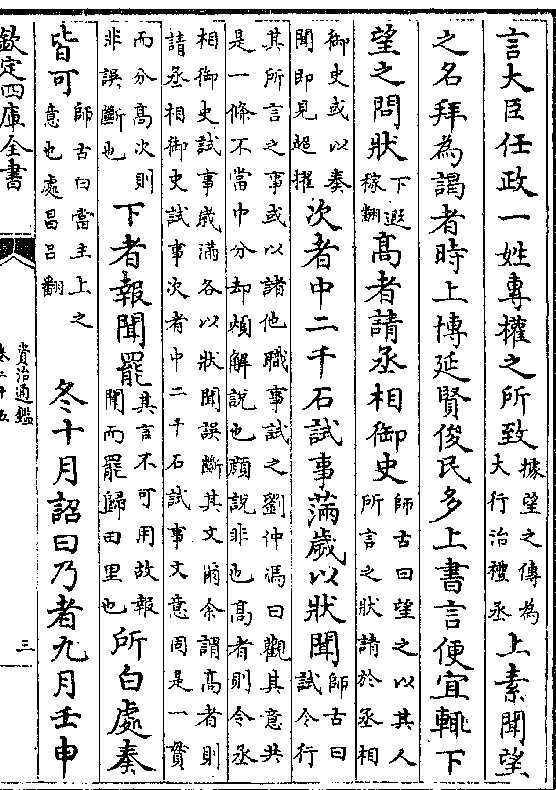 言大臣任政一姓專權之所致據望之傳為大行治禮丞上素聞望
之名拜為謁者時上博延賢俊民多上書言便宜輒下
望之問狀下遐稼翻高者請丞相御史師古曰望之以其人所言之狀請於丞相
御史或以奏聞即見超擢次者中二千石試事滿歲以狀聞師古曰試令行
其所言之事或以諸他職事試之劉仲馮曰觀其意共
是一條不當中分却頗解說也顔說非也高者則令丞
相御史試事歲滿各以狀聞誤斷其文爾余謂高者則
請丞相御史試事次者中二千石試事文意固是一貫
而分高次則非誤斷也下者報聞罷其言不可用故報聞而罷歸田里也所白處奏
皆可師古曰當主上之意也處昌呂翻 冬十月詔曰乃者九月壬申
欽定四庫全書
資治通鑑
卷二十五
三